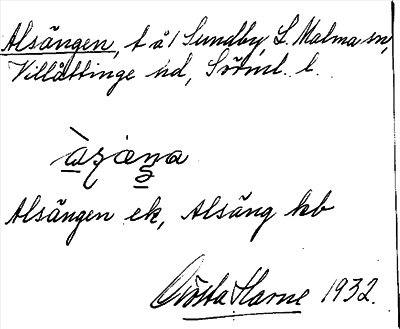 Alsängen, t å 1 Sundby, L. Malma sn,
Villåttinge hd, Söml. l.
Alsängen ek, Alsäng kb
Gösta Harne 1932.